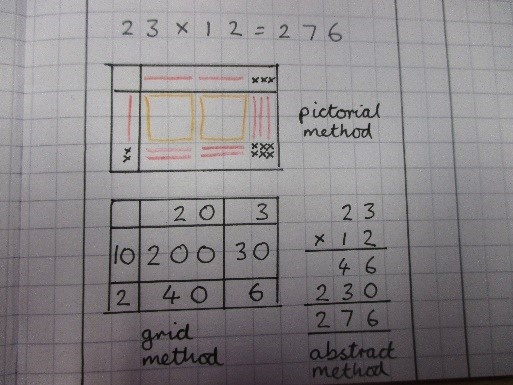 23 × 12 = 276
×××
pictorial
method
×
×
×××
×××
20 3
10 200 30
2 40 6
grid
method
23
× 12
46
230
276
abstract
method